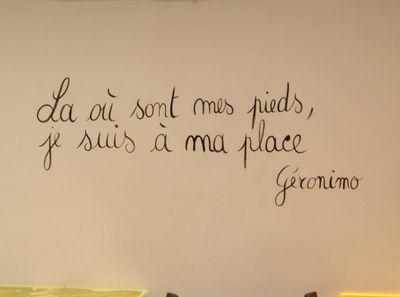 La où sont mes pieds,
je suis à ma place
Géronimo